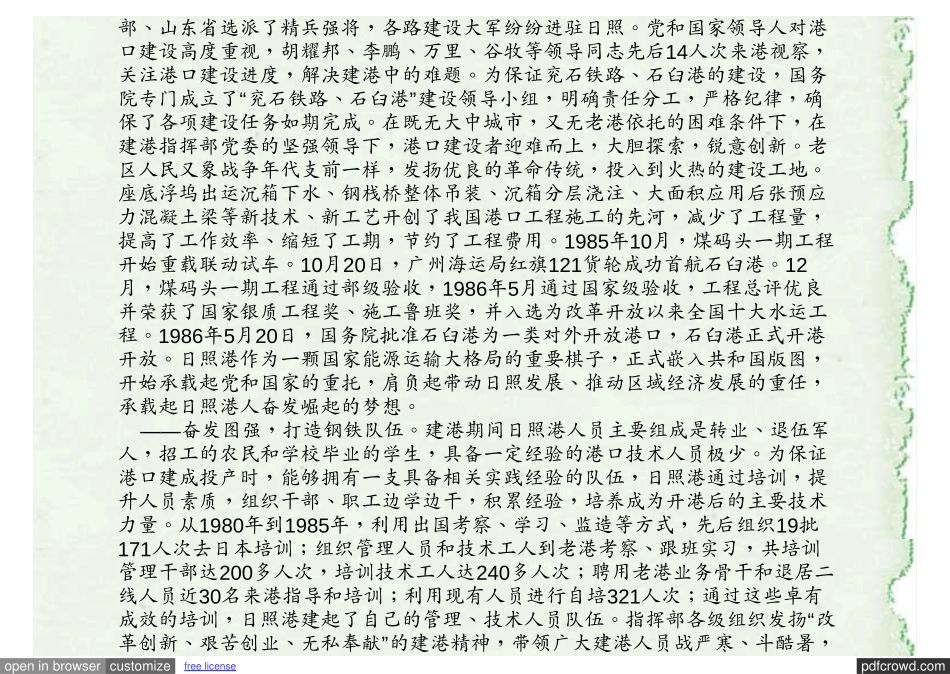 部、山东省选派了精兵强将，各路建设大军纷纷进驻日照。党和国家领导人对港
口建设高度重视，胡耀邦、李鹏、万里、谷牧等领导同志先后14人次来港视察，
关注港口建设进度，解决建港中的难题。为保证兖石铁路、石臼港的建设，国务
院专门成立了“兖石铁路、石臼港”建设领导小组，明确责任分工，严格纪律，确
保了各项建设任务如期完成。在既无大中城市，又无老港依托的困难条件下，在
建港指挥部党委的坚强领导下，港口建设者迎难而上，大胆探索，锐意创新。老
区人民又象战争年代支前一样，发扬优良的革命传统，投入到火热的建设工地。
座底浮坞出运沉箱下水、钢栈桥整体吊装、沉箱分层浇注、大面积应用后张预应
力混凝土梁等新技术、新工艺开创了我国港口工程施工的先河，减少了工程量，
提高了工作效率、缩短了工期，节约了工程费用。1985年10月，煤码头一期工程
开始重载联动试车。10月20日，广州海运局红旗121货轮成功首航石臼港。12
月，煤码头一期工程通过部级验收，1986年5月通过国家级验收，工程总评优良
并荣获了国家银质工程奖、施工鲁班奖，并入选为改革开放以来全国十大水运工
程。1986年5月20日，国务院批准石臼港为一类对外开放港口，石臼港正式开港
开放。日照港作为一颗国家能源运输大格局的重要棋子，正式嵌入共和国版图，
开始承载起党和国家的重托，肩负起带动日照发展、推动区域经济发展的重任，
承载起日照港人奋发崛起的梦想。
——奋发图强，打造钢铁队伍。建港期间日照港人员主要组成是转业、退伍军
人，招工的农民和学校毕业的学生，具备一定经验的港口技术人员极少。为保证
港口建成投产时，能够拥有一支具备相关实践经验的队伍，日照港通过培训，提
升人员素质，组织干部、职工边学边干，积累经验，培养成为开港后的主要技术
力量。从1980年到1985年，利用出国考察、学习、监造等方式，先后组织19批
171人次去日本培训；组织管理人员和技术工人到老港考察、跟班实习，共培训
管理干部达200多人次，培训技术工人达240多人次；聘用老港业务骨干和退居二
线人员近30名来港指导和培训；利用现有人员进行自培321人次；通过这些卓有
成效的培训，日照港建起了自己的管理、技术人员队伍。指挥部各级组织发扬“改
革创新、艰苦创业、无私奉献”的建港精神，带领广大建港人员战严寒、斗酷暑，
open in browser customize free license pdfcrowd.com